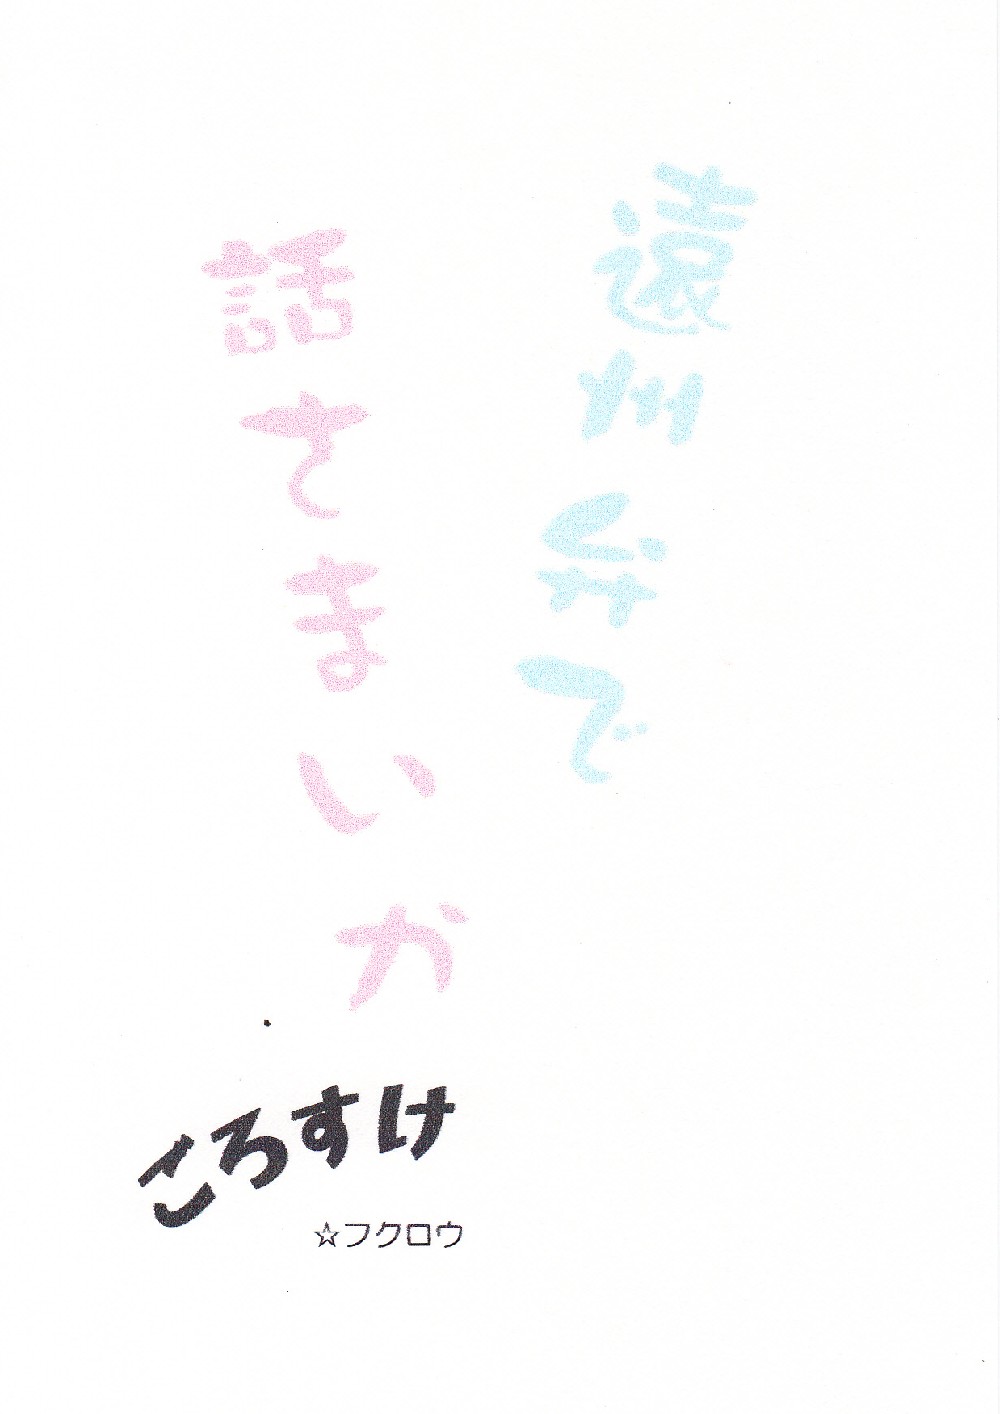 遠州弁で
話てまいか
ころすけ
☆フクロウ